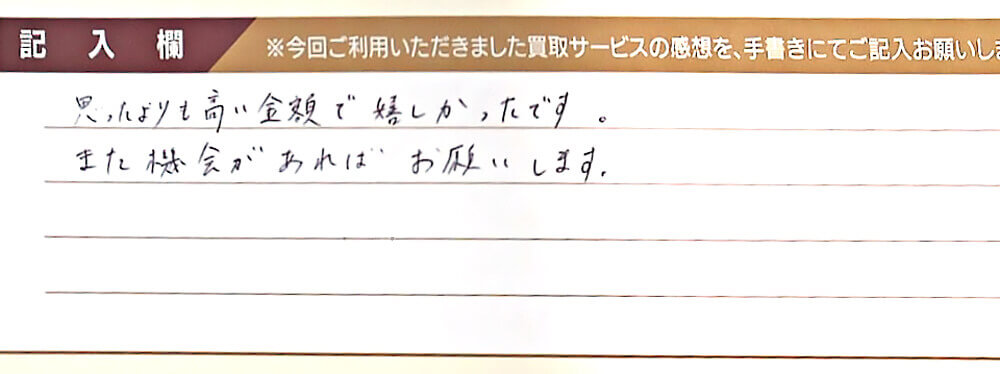 記入欄
※今回ご利用いただきました買取サービスの感想を、手書きにてご記入お願いしま
思ったよりも高い金額で嬉しかったです。
また機会があればお願いします。